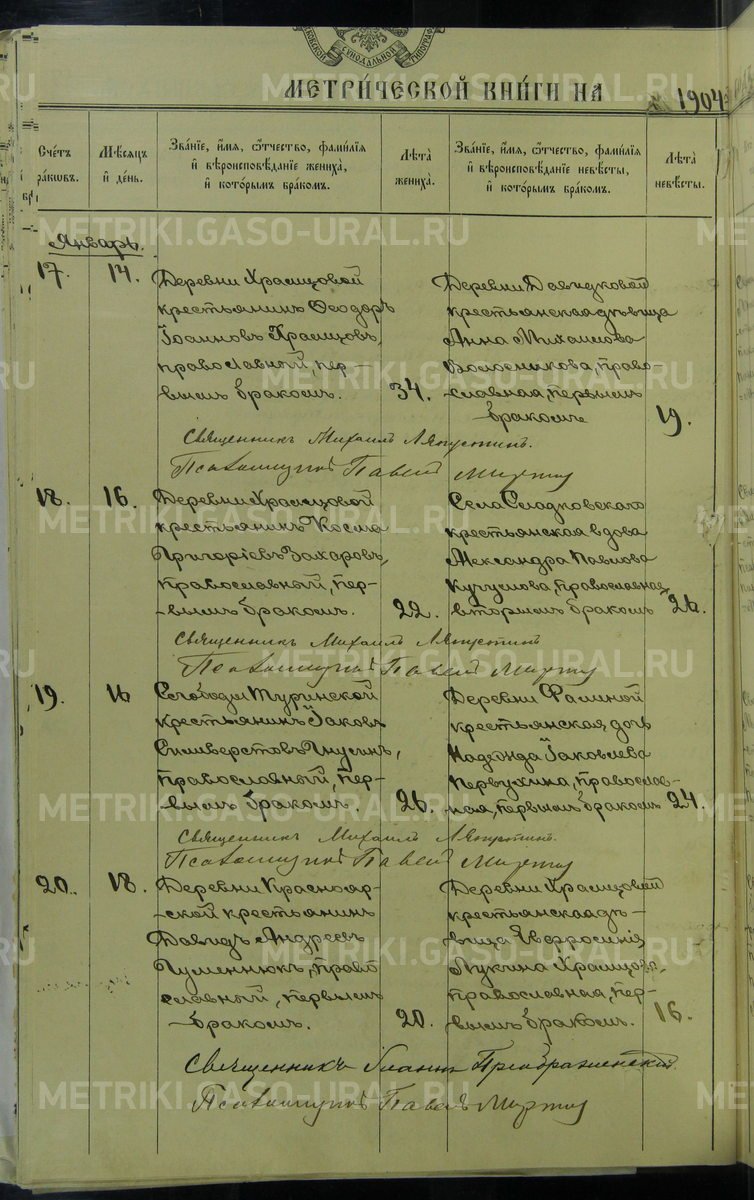 МЕТРИ́ЧЕСКОЙ КНИ́ГИ НА 1904
Сче́тъ бра́ковъ.
Мѣ́сяцъ и҆ де́нь.
Зва́нїе, и҆́мя, ѻ҆́тчество, фами́лїя и҆ вѣроисповѣ́данїе жениха̀, и҆ кото́рымъ бра́комъ.
Лѣ́та жениха̀.
Зва́нїе, и҆́мя, ѻ҆́тчество, фами́лїя и҆ вѣроисповѣ́данїе невѣ́сты, и҆ кото́рымъ бра́комъ.
Лѣ́та невѣ́сты.
Январь.
17. 14.
Деревни Храмцовой
крестьянинъ Ѳеодоръ
Іоанновъ Храмцовъ,
православный, пер-
вымъ бракомъ.
34.
Деревни Давыдковой
крестьянская дѣвица
Анна Михаилова
православная, первымъ
бракомъ
19.
Священникъ Михаилъ
Псаломщикъ Павелъ
18. 16.
Деревни Храмцовой
крестьянинъ Косма
Григоріевъ Захаровъ,
православный, пер-
-вымъ бракомъ.
22.
Села Сладковскаго
крестьянская вдова
Александра Павлова
православная,
вторымъ бракомъ
26.
Священникъ Михаилъ
Псаломщикъ Павелъ
19. 16
Слободы Туринской
крестьянинъ Іаковъ
Сильверстовъ
православный, пер-
вымъ бракомъ.
26.
Деревни Фалиной
крестьянская дочь
Надежда Іаковлева
Первухина, православ-
ная, первымъ бракомъ
24.
Священникъ Михаилъ
Псаломщикъ Павелъ
20. 18.
Деревни Краснояр-
-ской крестьянинъ
Давидъ Андреевъ
право
славный, первымъ
-бракомъ.
20.
Деревни Храмцовой
крестьянская дѣ-
вица Евфросинія
Лукина Храмцова,
православная, пер-
вымъ бракомъ.
16.
Священникъ Іоаннъ Преображенскій.
Псаломщикъ Павелъ
METRIKI.GASO-URAL.RU